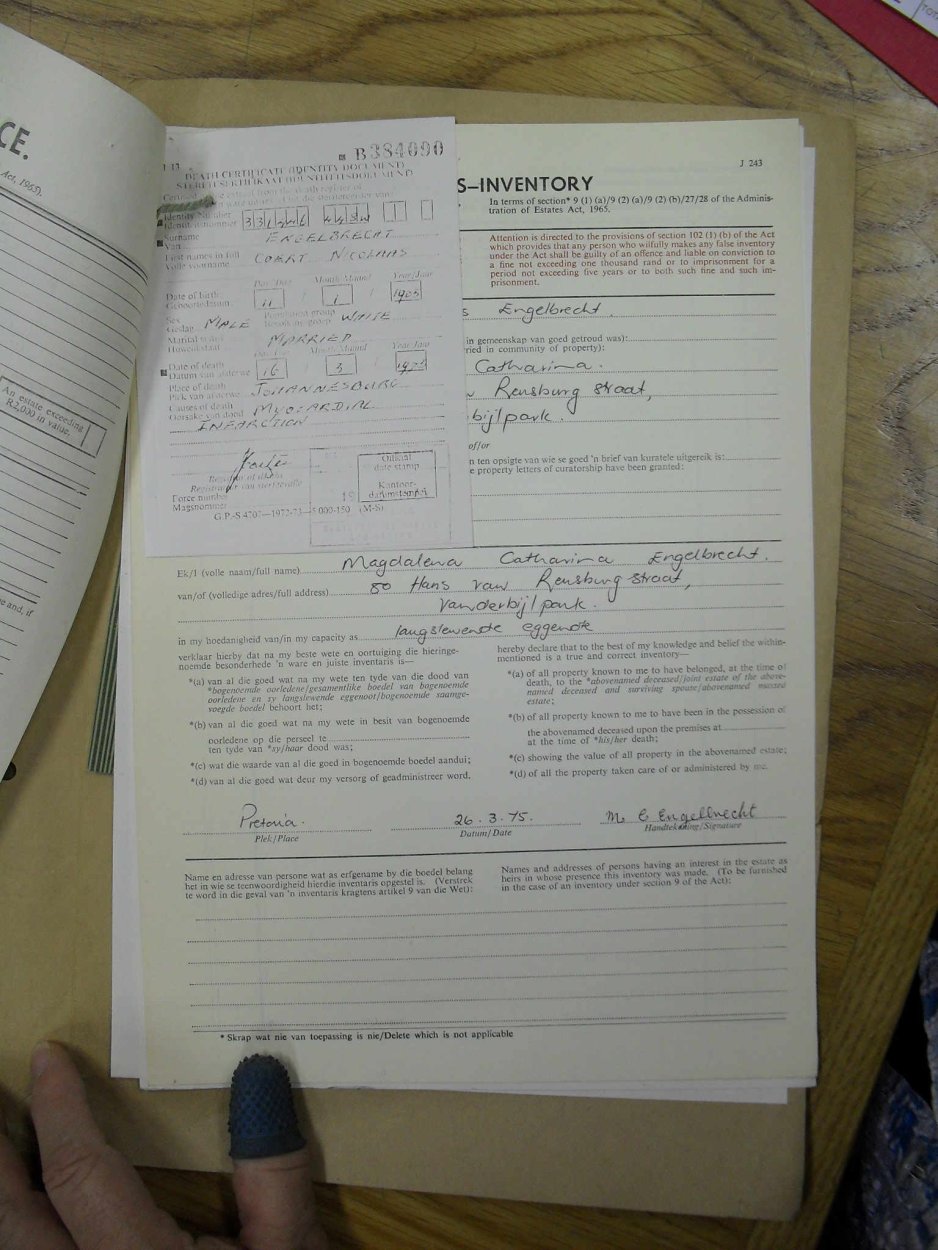 CE.
Act, 1965).
An estate exceeding
R2,000 in value.
e and, if
TOT
B384090
DEATH CERTIFICATE (IDENTITY DOCUMENT)
STERFTESERTIFIKAAT (IDENTITEITSDOKUMENT)
Identity Number
Identiteitsnommer
Surname
Van
ENGELBRECHT
First names in full
Volle voorname
COERT NICOLAAS
Day/Dag Month/Maand Year/Jaar
Date of birth
Geboortedatum
11 / 1 / 1903
Sex
Geslag MALE
Population group
Bevolkingsgroep WHITE
Marital status
Huwelikstaat MARRIED
Day/Dag Month/Maand Year/Jaar
Date of death
Datum van afsterwe 16 / 3 / 1975
Place of death
Plek van afsterwe JOHANNESBURG
Causes of death
Oorsake van dood MYOCARDIAL
INFARCTION
Registrar of deaths
Registrateur van sterfgevalle
Force number
Magsnommer
Official
date stamp
Kantoor-
datumstempel
19
G.P.-S 4707—1972-73—5 000-150 (M-S)
J 243
S–INVENTORY
In terms of section* 9 (1) (a)/9 (2) (a)/9 (2) (b)/27/28 of the Adminis-
tration of Estates Act, 1965.
Attention is directed to the provisions of section 102 (1) (b) of the Act
which provides that any person who wilfully makes any false inventory
under the Act shall be guilty of an offence and liable on conviction to
a fine not exceeding one thousand rand or to imprisonment for a
period not exceeding five years or to both such fine and such im-
prisonment.
s Engelbrecht.
in gemeenskap van goed getroud was):
ried in community of property):
Catharina.
w Rensburg straat,
bijlpark.
of/or
n ten opsigte van wie se goed 'n brief van kuratele uitgereik is:
e property letters of curatorship have been granted:
Ek/I (volle naam/full name) Magdalena Catharina Engelbrecht.
van/of (volledige adres/full address) 80 Hans van Rensburg straat,
Vanderbijlpark.
in my hoedanigheid van/in my capacity as langslewende eggenote
verklaar hierby dat na my beste wete en oortuiging die hieringe-
noemde besonderhede 'n ware en juiste inventaris is—
*(a) van al die goed wat na my wete ten tyde van die dood van
*bogenoemde oorledene/gesamentlike boedel van bogenoemde
oorledene en sy langslewende eggenoot/bogenoemde saamge-
voegde boedel behoort het;
*(b) van al die goed wat na my wete in besit van bogenoemde
oorledene op die perseel te
ten tyde van *sy/haar dood was;
*(c) wat die waarde van al die goed in bogenoemde boedel aandui;
*(d) van al die goed wat deur my versorg of geadministreer word.
hereby declare that to the best of my knowledge and belief the within-
mentioned is a true and correct inventory—
*(a) of all property known to me to have belonged, at the time of
death, to the *abovenamed deceased/joint estate of the above-
named deceased and surviving spouse/abovenamed massed
estate;
*(b) of all property known to me to have been in the possession of
the abovenamed deceased upon the premises at
at the time of *his/her death;
*(c) showing the value of all property in the abovenamed estate;
*(d) of all the property taken care of or administered by me.
Pretoria. 26.3.75. M C Engelbrecht
Plek/Place Datum/Date Handtekening/Signature
Name en adresse van persone wat as erfgename by die boedel belang
het in wie se teenwoordigheid hierdie inventaris opgestel is. (Verstrek
te word in die geval van 'n inventaris kragtens artikel 9 van die Wet):
Names and addresses of persons having an interest in the estate as
heirs in whose presence this inventory was made. (To be furnished
in the case of an inventory under section 9 of the Act):
* Skrap wat nie van toepassing is nie/Delete which is not applicable